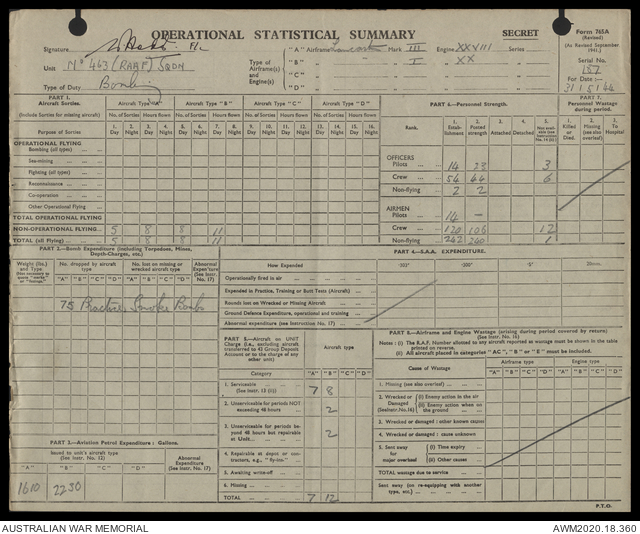 OPERATIONAL STATISTICAL SUMMARY
SECRET
Form 765A
(Revised)
(As Revised September 1941.)
Serial No.
137
For Date :—
31/5/44
Signature F/L
Unit No 463 (RAAF) SQDN
Type of Duty Bombing
Type of Airframe(s) and Engine(s)
"A" Airframe Lancaster Mark III Engine XXVIII Series
"B" I XX
"C"
"D"
PART 1.
Aircraft Sorties.
(Include Sorties for missing aircraft)
Aircraft Type "A" Aircraft Type "B" Aircraft Type "C" Aircraft Type "D"
No. of Sorties Hours flown No. of Sorties Hours flown No. of Sorties Hours flown No. of Sorties Hours flown
Purpose of Sorties
1. Day 2. Night 3. Day 4. Night 5. Day 6. Night 7. Day 8. Night 9. Day 10. Night 11. Day 12. Night 13. Day 14. Night 15. Day 16. Night
OPERATIONAL FLYING
Bombing (all types)
Sea-mining
Fighting (all types)
Reconnaissance
Co-operation
Other Operational Flying
TOTAL OPERATIONAL FLYING
NON-OPERATIONAL FLYING 5 8 8 11
TOTAL (all flying) 5 8 8 11
PART 6.—Personnel Strength.
Rank.
1. Establishment
2. Posted strength
3. Attached
4. Detached
5. Non available
OFFICERS
Pilots 14 23 3
Crew 54 44 6
Non-flying 2 2
AIRMEN
Pilots 14 —
Crew 120 106 12
Non-flying 242 240 1
PART 7.
Personnel Wastage during period.
1. Killed or Died.
2. Missing (see also overleaf)
3. Other causes
PART 2.—Bomb Expenditure (including Torpedoes, Mines, Depth-Charges, etc.)
Weight (lbs.) and Type
No. dropped by aircraft type
No. lost on missing or wrecked aircraft type
Abnormal Expenditure (See Instr. No. 17)
"A" "B" "C" "D" "A" "B" "C" "D"
75 Practice Smoke Bombs
PART 3.—Aviation Petrol Expenditure : Gallons.
Issued to unit's aircraft type (See Instr. No. 12)
Abnormal Expenditure (See Instr. No. 17)
"A" "B" "C" "D"
1610 2230
PART 4.—S.A.A. EXPENDITURE.
How Expended
·303" ·300" ·5" 20mm.
Operationally fired in air
Expended in Practice, Training or Butt Tests (Aircraft)
Rounds lost on Wrecked or Missing Aircraft
Ground Defence Expenditure, operational and training
Abnormal expenditure (see Instruction No. 17)
PART 5.—Aircraft on UNIT Charge (i.e., excluding aircraft transferred to 43 Group Deposit Account or to the charge of any other unit)
Aircraft type
Category "A" "B" "C" "D"
1. Serviceable (See Instr. 13 (ii)) 7 8
2. Unserviceable for periods NOT exceeding 48 hours 2
3. Unserviceable for periods beyond 48 hours but repairable at Unit 2
4. Repairable at depot or contractors, e.g., "fly-ins."
5. Awaiting write-off
6. Missing
TOTAL 7 12
PART 8.—Airframe and Engine Wastage (arising during period covered by return)
(See Instr. No. 16)
Notes : (i) The R.A.F. Number allotted to any aircraft reported as wastage must be shown in the table printed on reverse.
(ii) All aircraft placed in categories "AC", "B" or "E" must be included.
Cause of Wastage
Airframe type Engine type
"A" "B" "C" "D" "A" "B" "C" "D"
1. Missing (see also overleaf)
2. Wrecked or Damaged (See Instr. No. 16)
(i) Enemy action in the air
(ii) Enemy action when on the ground
3. Wrecked or damaged : other known causes
4. Wrecked or damaged : cause unknown
5. Sent away for major overhaul
(i) Time expiry
(ii) Other causes
TOTAL wastage due to service
Sent away (on re-equipping with another type, etc.)
P.T.O.
AUSTRALIAN WAR MEMORIAL
AWM2020.18.360